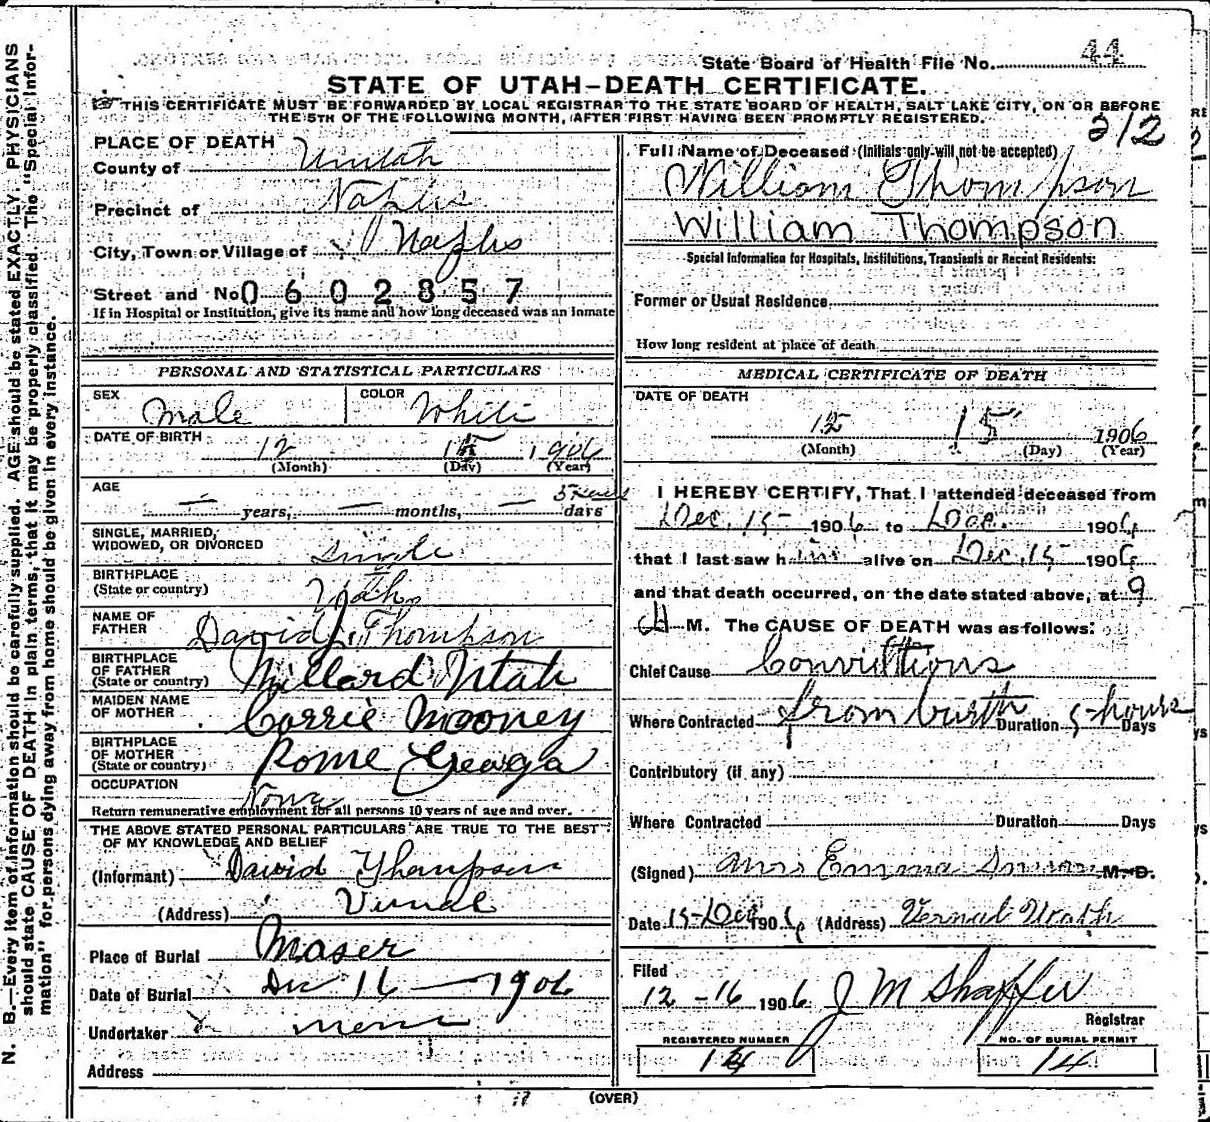 State Board of Health File No. 44
STATE OF UTAH-DEATH CERTIFICATE.
THIS CERTIFICATE MUST BE FORWARDED BY LOCAL REGISTRAR TO THE STATE BOARD OF HEALTH, SALT LAKE CITY, ON OR BEFORE
THE 5TH OF THE FOLLOWING MONTH, AFTER FIRST HAVING BEEN PROMPTLY REGISTERED.
212
PLACE OF DEATH
County of Uintah
Precinct of Naples
City, Town or Village of Naples
Street and No. 0602857
If in Hospital or Institution, give its name and how long deceased was an inmate
Full Name of Deceased (Initials only will not be accepted)
William Thompson
William Thompson
Special Information for Hospitals, Institutions, Transients or Recent Residents:
Former or Usual Residence
How long resident at place of death
PERSONAL AND STATISTICAL PARTICULARS
SEX Male COLOR White
DATE OF BIRTH 12 15 1906
(Month) (Day) (Year)
AGE
— years, — months, — 5 hours days
SINGLE, MARRIED,
WIDOWED, OR DIVORCED Single
BIRTHPLACE
(State or country) Utah
NAME OF
FATHER David L. Thompson
BIRTHPLACE
OF FATHER
(State or country) Millard Utah
MAIDEN NAME
OF MOTHER Carrie Mooney
BIRTHPLACE
OF MOTHER
(State or country) Rome Georga
OCCUPATION
None
Return remunerative employment for all persons 10 years of age and over.
THE ABOVE STATED PERSONAL PARTICULARS ARE TRUE TO THE BEST
OF MY KNOWLEDGE AND BELIEF
(Informant) David Thompson
(Address) Vernal
Place of Burial Maser
Date of Burial Dec 16 — 1906
Undertaker
Address
MEDICAL CERTIFICATE OF DEATH
DATE OF DEATH
12 15 1906
(Month) (Day) (Year)
I HEREBY CERTIFY, That I attended deceased from
Dec. 15 1906 to Dec. 1906
that I last saw him alive on Dec. 15 1906
and that death occurred, on the date stated above, at 9
M. The CAUSE OF DEATH was as follows:
Chief Cause Convulttions
Where Contracted from burth Duration 5 hours Days
Contributory (if any)
Where Contracted Duration Days
(Signed) Mrs Emma M.D.
Date 15 Dec 1906 (Address) Vernal Utah
Filed
12-16 1906 J M Shaffer
Registrar
REGISTERED NUMBER NO. OF BURIAL PERMIT
14 14
(OVER)
N. B.—Every item of information should be carefully supplied. AGE should be stated EXACTLY. PHYSICIANS
should state CAUSE OF DEATH in plain terms, that it may be properly classified. The "Special Infor-
mation" for persons dying away from home should be given in every instance.